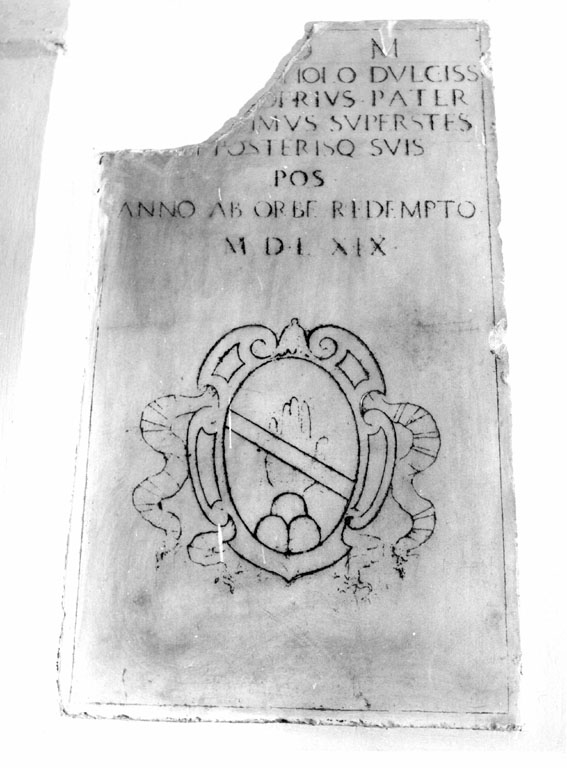 M
IOLO DVLCISS
RIVS · PATER
IMVS SVPERSTES
POSTERISQ SVIS
POS
ANNO AB ORBE REDEMPTO
M D L XIX